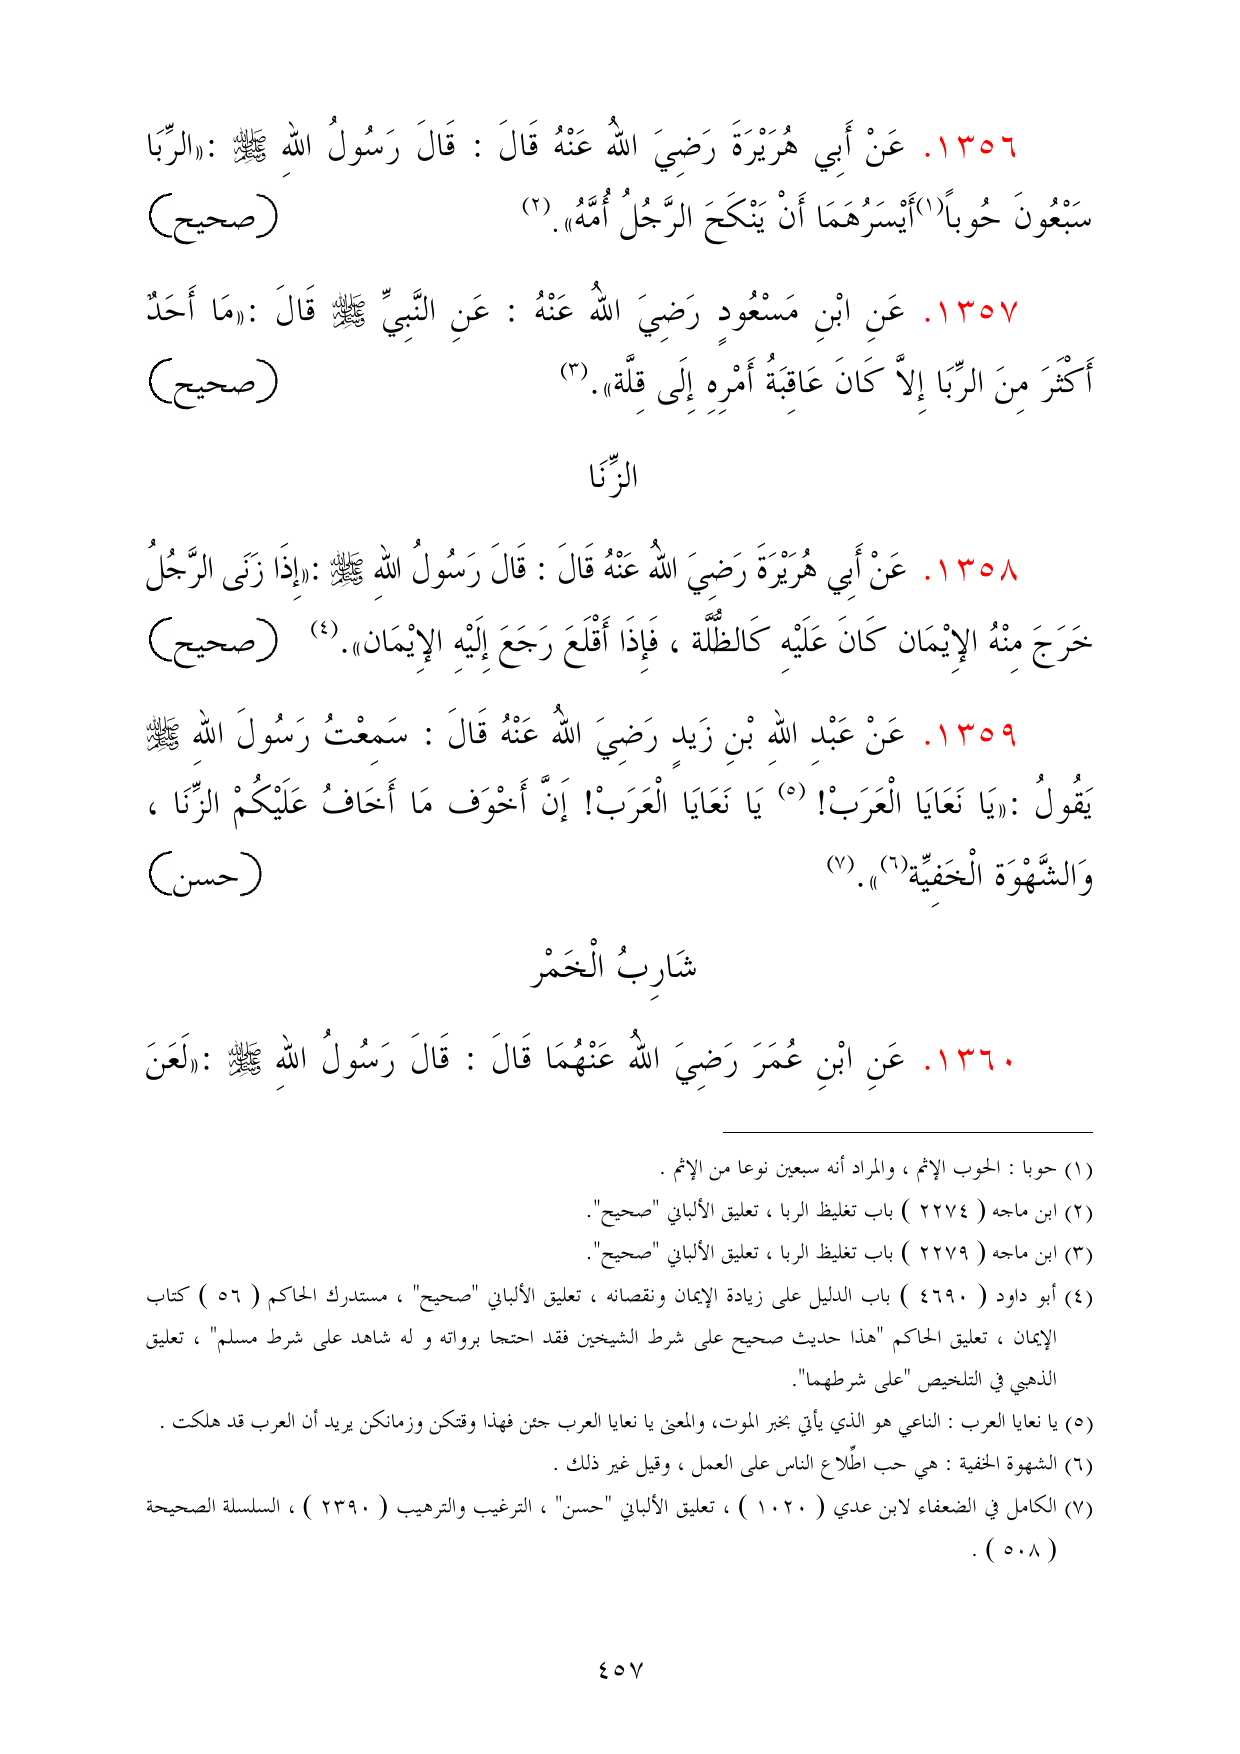 ١٣٥٦. عَنْ أَبِي هُرَيْرَةَ رَضِيَ اللهُ عَنْهُ قَالَ : قَالَ رَسُولُ اللهِ ﷺ :«الرِّبَا
سَبْعُونَ حُوباً(١)أَيْسَرُهَمَا أَنْ يَنْكَحَ الرَّجُلُ أُمَّهُ». (٢) (صحيح)
١٣٥٧. عَنِ ابْنِ مَسْعُودٍ رَضِيَ اللهُ عَنْهُ : عَنِ النَّبِيِّ ﷺ قَالَ :«مَا أَحَدٌ
أَكْثَرَ مِنَ الرِّبَا إِلاَّ كَانَ عَاقِبَةُ أَمْرِهِ إِلَى قِلَّة».(٣) (صحيح)
الزِّنَا
١٣٥٨. عَنْ أَبِي هُرَيْرَةَ رَضِيَ اللهُ عَنْهُ قَالَ : قَالَ رَسُولُ اللهِ ﷺ :«إِذَا زَنَى الرَّجُلُ
خَرَجَ مِنْهُ الإِيْمَان كَانَ عَلَيْهِ كَالظُّلَّة ، فَإِذَا أَقْلَعَ رَجَعَ إِلَيْهِ الإِيْمَان».(٤) (صحيح)
١٣٥٩. عَنْ عَبْدِ اللهِ بْنِ زَيدٍ رَضِيَ اللهُ عَنْهُ قَالَ : سَمِعْتُ رَسُولَ اللهِ ﷺ
يَقُولُ :«يَا نَعَايَا الْعَرَبْ! (٥) يَا نَعَايَا الْعَرَبْ! إَنَّ أَخْوَف مَا أَخَافُ عَلَيْكُمْ الزِّنَا ،
وَالشَّهْوَة الْخَفِيِّة(٦)».(٧) (حسن)
شَارِبُ الْخَمْر
١٣٦٠. عَنِ ابْنِ عُمَرَ رَضِيَ اللهُ عَنْهُمَا قَالَ : قَالَ رَسُولُ اللهِ ﷺ :«لَعَنَ
(١) حوبا : الحوب الإثم ، والمراد أنه سبعين نوعا من الإثم .
(٢) ابن ماجه ( ٢٢٧٤ ) باب تغليظ الربا ، تعليق الألباني "صحيح".
(٣) ابن ماجه ( ٢٢٧٩ ) باب تغليظ الربا ، تعليق الألباني "صحيح".
(٤) أبو داود ( ٤٦٩٠ ) باب الدليل على زيادة الإيمان ونقصانه ، تعليق الألباني "صحيح" ، مستدرك الحاكم ( ٥٦ ) كتاب
الإيمان ، تعليق الحاكم "هذا حديث صحيح على شرط الشيخين فقد احتجا برواته و له شاهد على شرط مسلم" ، تعليق
الذهبي في التلخيص "على شرطهما".
(٥) يا نعايا العرب : الناعي هو الذي يأتي بخبر الموت، والمعنى يا نعايا العرب جئن فهذا وقتكن وزمانكن يريد أن العرب قد هلكت .
(٦) الشهوة الخفية : هي حب اطِّلاع الناس على العمل ، وقيل غير ذلك .
(٧) الكامل في الضعفاء لابن عدي ( ١٠٢٠ ) ، تعليق الألباني "حسن" ، الترغيب والترهيب ( ٢٣٩٠ ) ، السلسلة الصحيحة
( ٥٠٨ ) .
٤٥٧